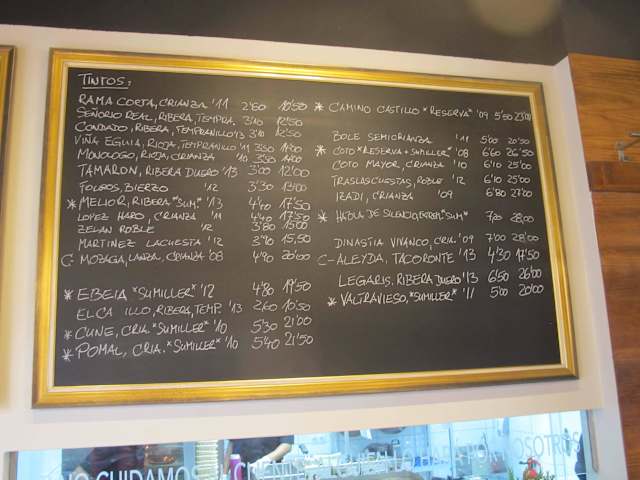 TINTOS:
RAMA CORTA, CRIANZA '11 2'60 10'50
SEÑORIO REAL, RIBERA, TEMPRA. 3'10 12'50
CONDADO, RIBERA, TEMPRANILLO '13 3'10 12'50
VIÑA EGUIA, RIOJA, TEMPRANILLO '11 3'50
MONOLOGO, RIOJA, CRIANZA '10 3'50 14'00
TAMARON, RIBERA DUERO '13 3'00 12'00
BIERZO '12 3'30 13'00
* MELIOR, RIBERA "SUM." '13 4'40 17'50
LOPEZ HARO, CRIANZA '11 4'40 17'50
ZELAN ROBLE '12 3'80 15'00
MARTINEZ LACUESTA '12 3'90 15,50
C- MOZAGA, LANZA, CRIANZA '08 4'90 20'00
* EBEIA "SUMILLER" '12 4'80 19'50
ELCA ILLO, RIBERA, TEMP. '13 2'60 10'50
* CUNE, CRIA. "SUMILLER" '10 5'30 21'00
* POMAL, CRIA. "SUMILLER" '10 5'40 21'50
* CAMINO CASTILLO "RESERVA" '09 5'50 23'00
BOLE SEMICRIANZA '11 5'00 20'50
* COTO "RESERVA + SUMILLER" '08 6'60 26'50
COTO MAYOR, CRIANZA '10 6'10 25'00
TRASLASCUESTAS, ROBLE '12 6'10 25'00
IZADI, CRIANZA '09 6'80 27'00
* HABLA DE SILENCIO, EXTER. "SUM" 7'20 28,00
DINASTIA VIVANCO, CRIA. '09 7'00 28'00
C- ALEYDA, TACORONTE '13 4'30 17'50
LEGARIS, RIBERA DUERO '13 6'50 26'00
* VALTRAVIESO, "SUMILLER" '11 5'00 20'00
NO CUIDAMOS
OSOTROS